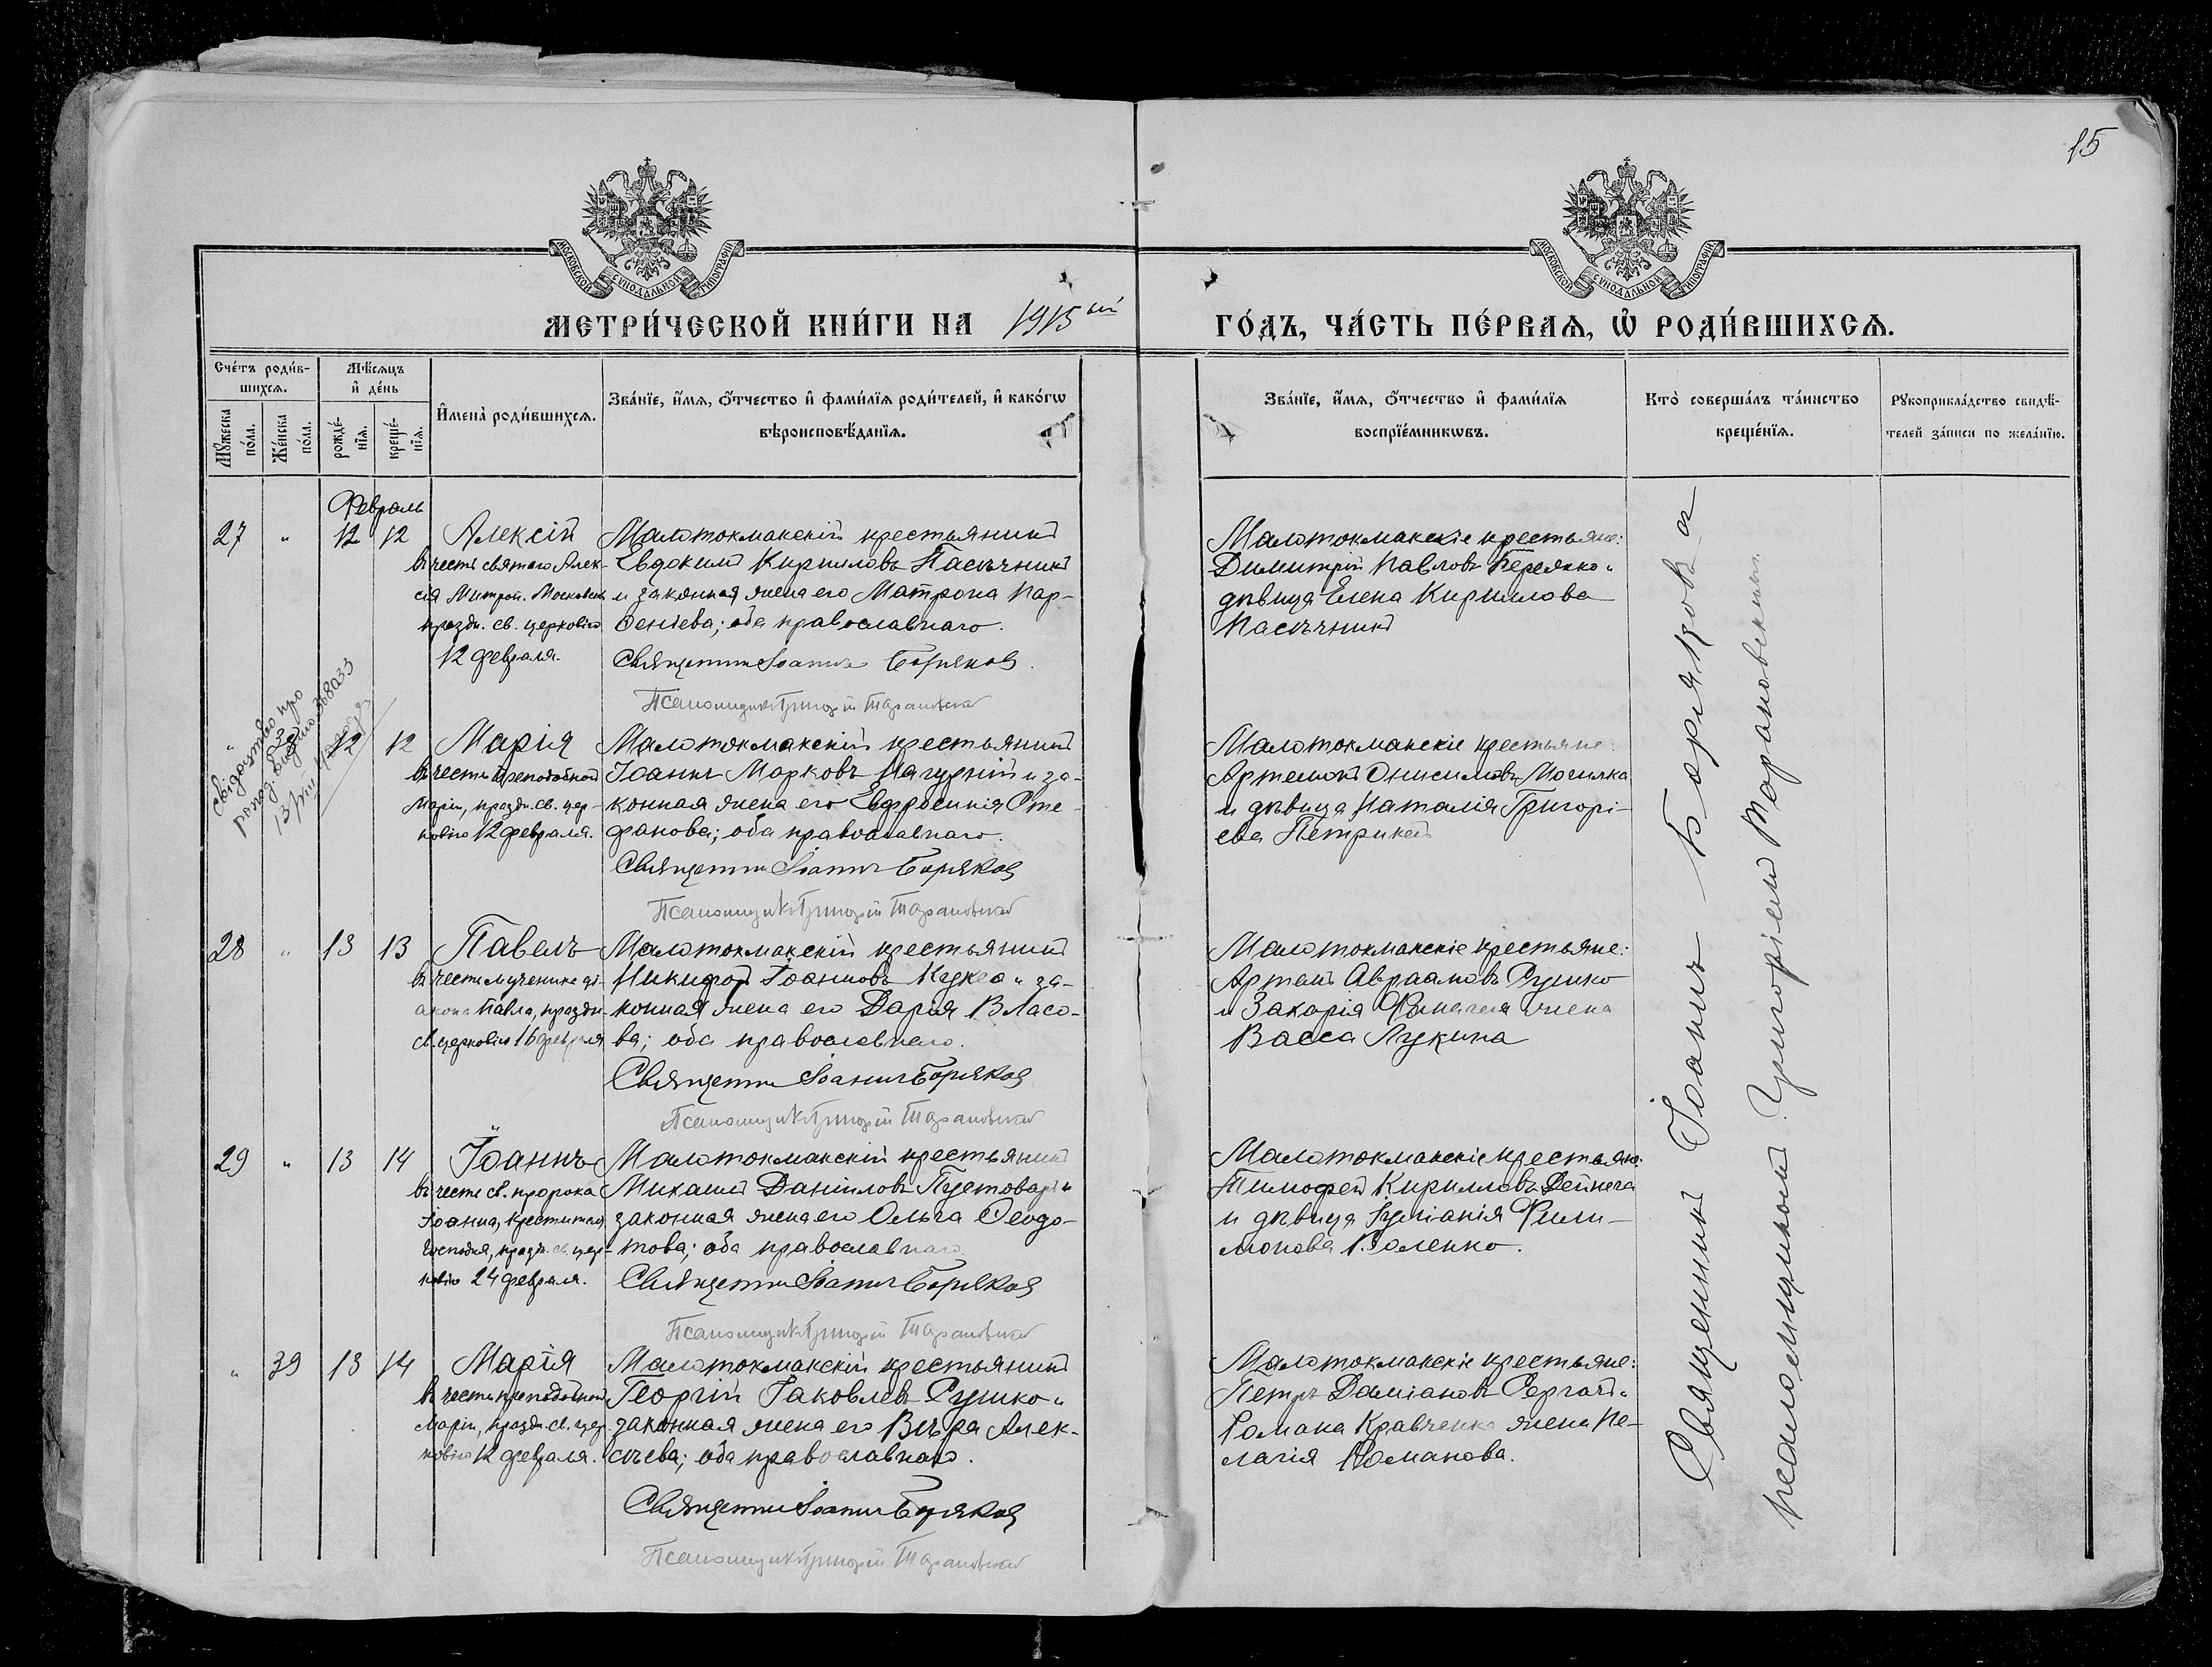 15
МОСКОВСКОЙ СѴНОДАЛЬНОЙ ТИПОГРАФІИ
МОСКОВСКОЙ СѴНОДАЛЬНОЙ ТИПОГРАФІИ
МЕТРИ́ЧЕСКОЙ КНИ́ГИ НА 1915ый ГО́ДЪ, ЧА́СТЬ ПЕ́РВАѦ, Ѡ҆ РОДИ́ВШИХСѦ.
Сче́тъ роди́в-
шихсѧ.
Мѣ́сѧцъ
и҆ де́нь
Мꙋ́жеска по́ла.
Же́нска по́ла.
рожде́-нїѧ.
креще́-нїѧ.
И҆мена̀ роди́вшихсѧ.
Зва́нїе, и҆́мѧ, ѻ҆́тчество и҆ фами́лїѧ роди́телей, и҆ како́гѡ
вѣроисповѣ́данїѧ.
Зва́нїе, и҆́мѧ, ѻ҆́тчество и҆ фами́лїѧ
воспрїе́мникѡвъ.
Кто̀ соверша́лъ та́инство
креще́нїѧ.
Рꙋкоприкла́дство свидѣ́-
телей за́писи по жела́нїю.
Февраль
27 " 12 12 Алексій
въ честь святаго Алек-
сія Митроп. Московск
праздн. св. церковію
12 февраля.
Малотокмакскій крестьянинъ
Евдокимъ Кирилловъ Пасѣчникъ
и законная жена его Матрона Пар-
ѳеніева; оба православнаго.
Священникъ Іоаннъ Боряковъ
Псаломщикъ Григорій Тарановскій
Малотокмакскіе крестьяне:
Димитрій Павловъ и
дѣвица Елена Кириллова
Пасѣчникъ
Свідоцтво про
" 38 12 12 Марія
въ честь преподобной
Маріи, праздн. св. цер-
ковію 12 февраля.
Малотокмакскій крестьянинъ
Іоаннъ Марковъ Нагурній и за-
конная жена его Евфросинія Сте-
фанова; оба православнаго.
Священникъ Іоаннъ Боряковъ
Псаломщикъ Григорій Тарановскій
Малотокмакскіе крестьяне:
Артемонъ Онисимовъ Могилка
и дѣвица Наталія Григорі-
ева Петрикей
28 " 13 13 Павелъ
въ честь мученика ді-
акона Павла, праздн.
св. церковію 16 февраля
Малотокмакскій крестьянинъ
Никифоръ Іоанновъ и за-
конная жена его Дарія Власо-
ва; оба православнаго.
Священникъ Іоаннъ Боряковъ
Псаломщикъ Григорій Тарановскій
Малотокмакскіе крестьяне:
Артемъ Авраамовъ Сушко
и Захарія жена
Васса Лукина
29 " 13 14 Іоаннъ
въ честь св. пророка
Іоанна, Крестителя
Господня, праздн. св. цер-
ковію 24 февраля.
Малотокмакскій крестьянинъ
Михаилъ Даніиловъ Пустоваръ и
законная жена его Ольга Ѳеодо-
това; оба православнаго.
Священникъ Іоаннъ Боряковъ
Псаломщикъ Григорій Тарановскій
Малотокмакскіе крестьяне:
Тимофей Кирилловъ Дейнега
и дѣвица Іуліанія Фили-
монова
" 39 13 14 Марія
въ честь преподобной
Маріи, праздн. св. цер-
ковію 12 февраля.
Малотокмакскій крестьянинъ
Георгій Іаковлевъ Сушко и
законная жена его Вѣра Алек-
сѣева; оба православнаго.
Священникъ Іоаннъ Боряковъ
Псаломщикъ Григорій Тарановскій
Малотокмакскіе крестьяне:
Петръ Даміановъ и
Романа Кравченка жена Пе-
лагія Романова.
Священникъ Іоаннъ Боряковъ съ
псаломщикомъ Григоріемъ Тарановскимъ